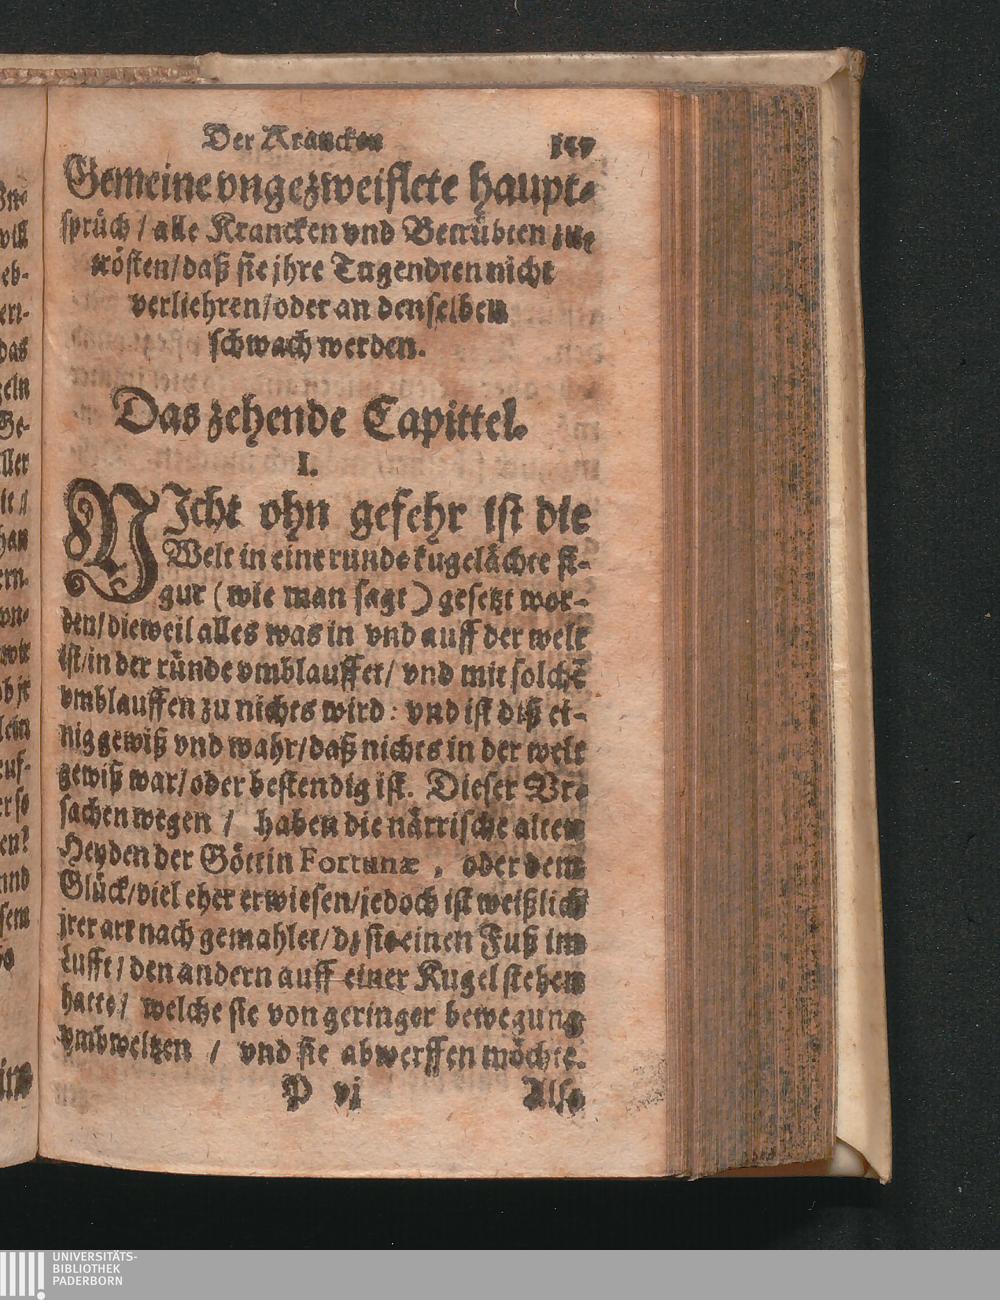 Der Krancken
Gemeine vngezweiflete haupt-
sprüch / alle Krancken vnd Betrübten zu
trösten/daß sie jhre Tugendten nicht
verliehren/oder an denselben
schwach werden.
Das zehende Capittel.
I.
NJcht ohn gefehr ist die
Welt in eine runde kugelächte fi-
gur (wie man sagt) gesetzt wor-
den/dieweil alles was in vnd auff der welt
ist/in der ründe vmblauffet/ vnd mit solchẽ
vmblauffen zu nichts wird: vnd ist diß ei-
nig gewiß vnd wahr/daß nichts in der welt
gewiß war/oder bestendig ist. Dieser Vr-
sachen wegen / haben die närrische alten
Heyden der Göttin Fortunæ, oder dem
Glück/viel eher erwiesen/jedoch ist weißlich
jrer art nach gemahlet/dz sie einen Fuß im
Lufft/den andern auff einer Kugel stehen
hatte/ welche sie von geringer bewegung
vmbweltzen / vnd sie abwerffen möchte.
P vj Also
UNIVERSITÄTS-
BIBLIOTHEK
PADERBORN